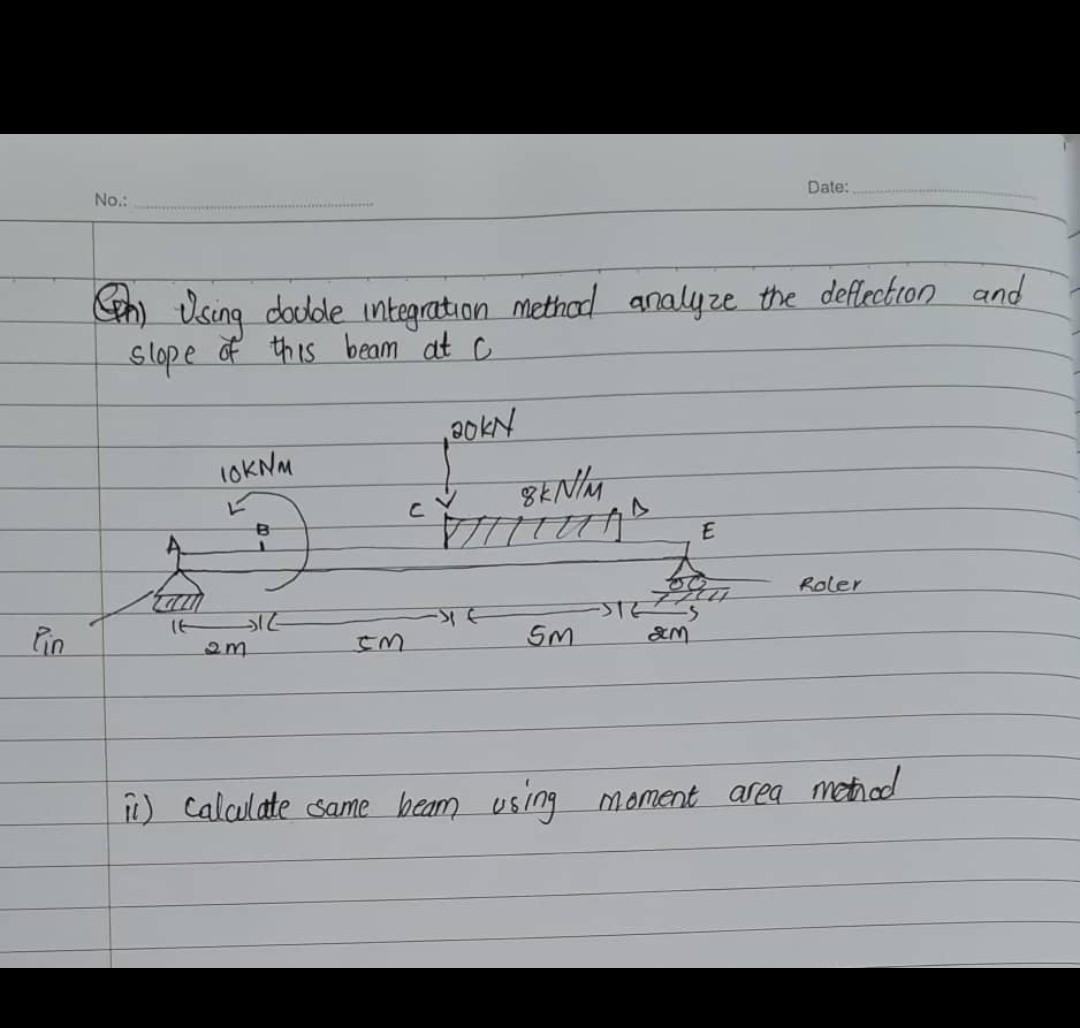 No.:
Date:
Qn) Using double integration method analyze the deflection and
slope of this beam at C
20KN
10KNM
8KN/M
C
D
B
A
E
Roler
Pin
2m
5M
5M
2M
ii) Calculate same beam using moment area method